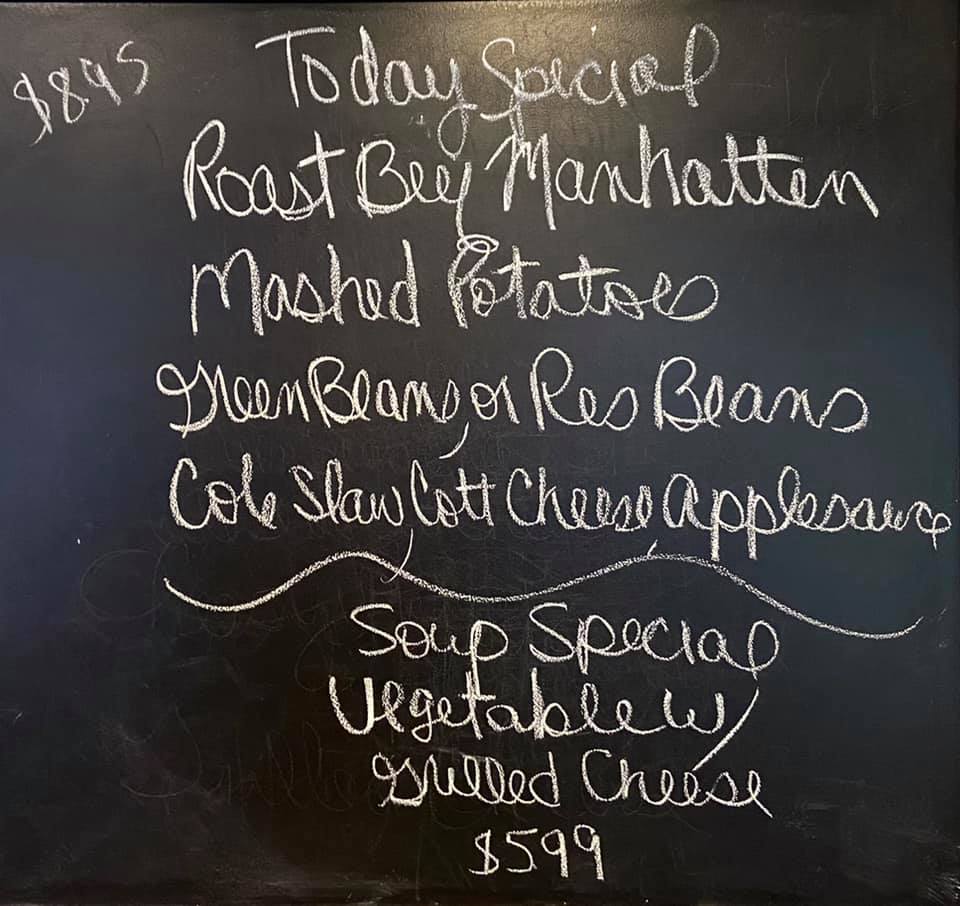 $895
Today Special
Roast Beef Manhatten
Mashed Potatoes
Green Beans, or Res Beans
Cole Slaw, Cott Cheese, Applesauce
Soup Special
Vegetable w/
Grilled Cheese
$599